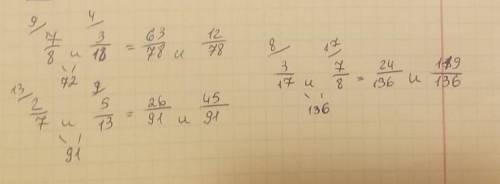 9/ 4/
7/8 и 3/18 = 63/78 и 12/78
72
13/ 7/
2/7 и 5/13 = 26/91 и 45/91
91
8/ 17/
3/17 и 7/8 = 24/136 и 119/136
136